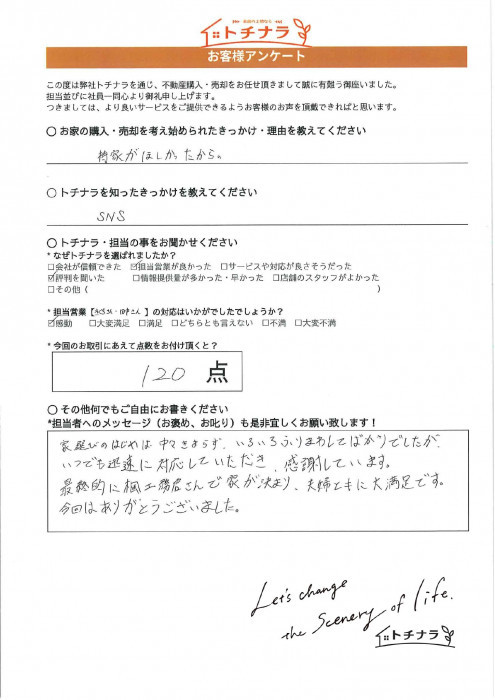 トチナラ
お客様アンケート
この度は弊社トチナラを通じ、不動産購入・売却をお任せ頂きまして誠に有難う御座いました。
担当並びに社員一同心より御礼申し上げます。
つきましては、より良いサービスをご提供できるようお客様のお声を頂戴できればと思います。
○ お家の購入・売却を考え始められたきっかけ・理由を教えてください
持家がほしかったから。
○ トチナラを知ったきっかけを教えてください
SNS
○ トチナラ・担当の事をお聞かせください
* なぜトチナラを選ばれましたか？
□会社が信頼できた ☑担当営業が良かった □サービスや対応が良さそうだった
☑評判を聞いた □情報提供量が多かった・早かった □店舗のスタッフがよかった
□その他（ ）
* 担当営業【 】の対応はいかがでしたでしょうか？
☑感動 □大変満足 □満足 □どちらとも言えない □不満 □大変不満
* 今回のお取引にあえて点数をお付け頂くと？
120 点
○ その他何でもご自由にお書きください
*担当者へのメッセージ（お褒め、お叱り）も是非宜しくお願い致します！
家選びのはじめは中々きまらず、いろいろふりまわしてばかりでしたが、
いつでも迅速に対応していただき、感謝しています。
最終的に楓工務店さんで家が決まり、夫婦ともに大満足です。
今回はありがとうございました。
Let's change
the Scenery of life.
トチナラ